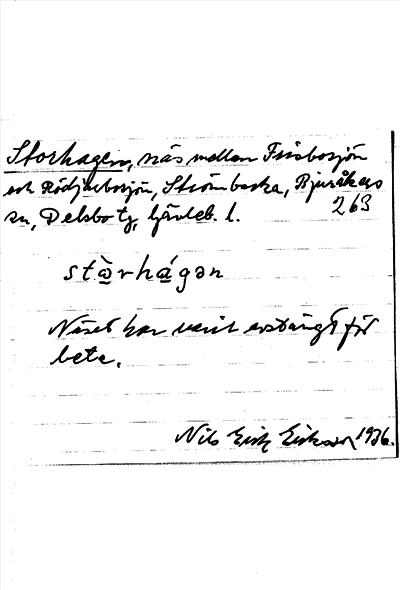 Storhagen, näs mellan Frisbosjön
och Rödjebosjön, Strömbacka, Bjuråkers
263
sn, Delsbo tg, Gävleb. l.
stàrhágən
Näset har varit avstängt för
bete.
Nils Erik Erikson 1936.